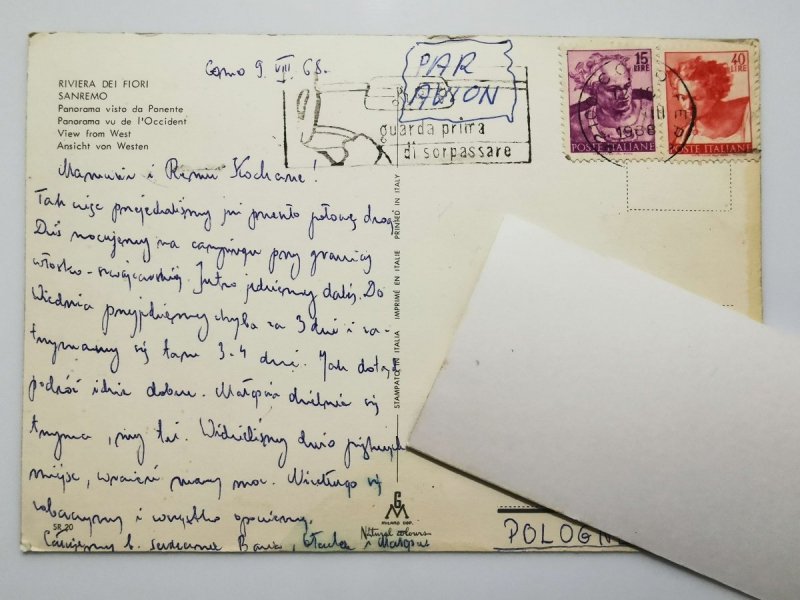 Como 9. VIII. 68.
PAR
AVION
RIVIERA DEI FIORI
SANREMO
Panorama visto da Ponente
Panorama vu de l'Occident
View from West
Ansicht von Westen
guarda prima
di sorpassare
15
LIRE
POSTE ITALIANE
40
LIRE
POSTE ITALIANE
1968
Mamusiu i Reniu Kochane!
Tak więc przejechaliśmy już ponad połowę drogi
Dziś nocujemy na campingu przy granicy
włosko-szwajcarskiej. Jutro jedziemy dalej. Do
Wiednia przyjedziemy chyba za 3 dni i za-
trzymamy się tam 3-4 dni. Jak dotąd
podróż idzie dobrze. Małgosia dzielnie się
trzyma, my też. Widzieliśmy dużo pięknych
miejsc, wrażeń mamy moc. Niedługo się
zobaczymy i wszystko opowiemy.
Całujemy b. serdecznie Basia, i Małgosia
STAMPATO IN ITALIA IMPRIMÉ EN ITALIE PRINTED IN ITALY
SR 20
GM
MILANO COP.
Natural colours
POLOGNE